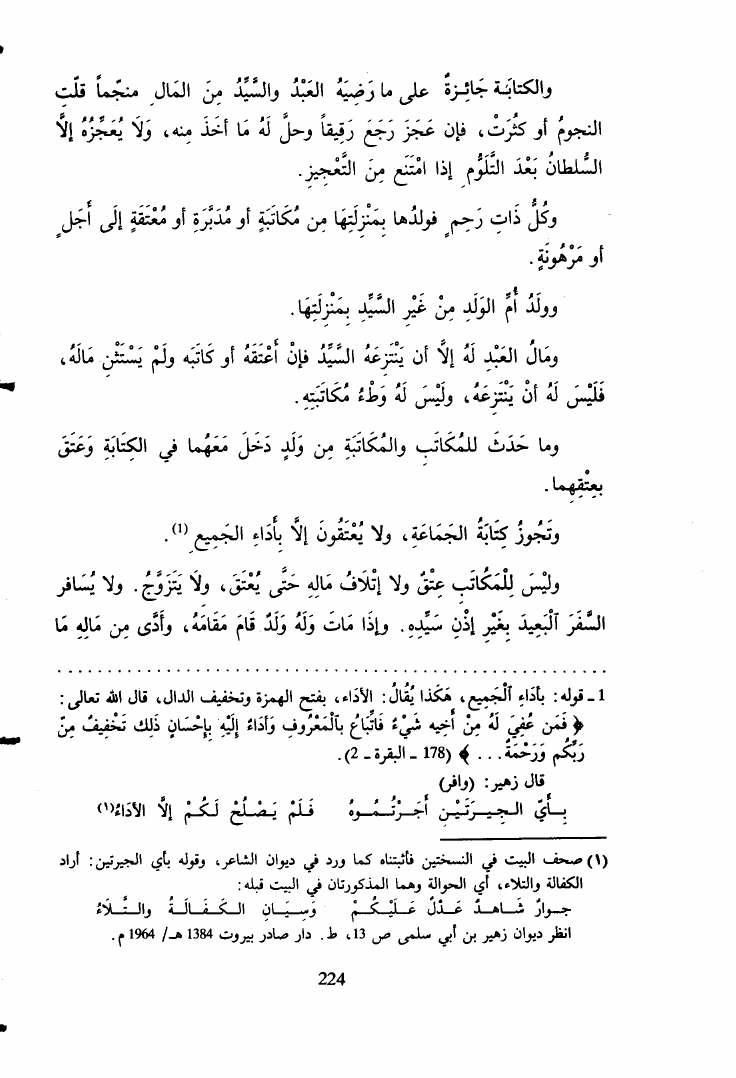 والكتابَـة جَائِـزةٌ على ما رَضِيَهُ العَبْدُ والسَّيِّدُ مِنَ المَالِ منجّماً قلّت
النجومُ أو كثُرَتْ، فإن عَجَز رَجَع رَقِيقاً وحلَّ لَهُ مَا أخذَ منه، وَلَا يُعَجِّزُهُ إلّا
السلطانُ بَعْدَ التَّلَوُّمِ إذا امْتَنَع مِنَ التَّعْجِيزِ.
وكُلُّ ذَاتِ رَحِمٍ فولدُها بِمَنْزِلَتِهَا مِن مُكَاتَبَةٍ أو مُدَبَّرَةِ أو مُعْتَقَةٍ إلَى أَجَلٍ
أو مَرْهُونَةٍ.
وولَدُ أُمِّ الوَلَدِ مِنْ غَيْرِ السَّيِّدِ بِمَنْزِلَتِهَا.
ومَالُ العَبْدِ لَهُ إلاَّ أن يَنْتَزِعَهُ السَّيِّدُ فإنْ أَعْتَقَهُ أو كَاتَبَه ولَمْ يَسْتَثْنِ مَالَهُ،
فَلَيْسَ لَهُ أنْ يَنْتَزِعَهُ، ولَيْسَ لَهُ وَطْءُ مُكَاتَبَتِهِ.
وما حَدَثَ للمُكَاتَبِ والمُكَاتَبَةِ مِن وَلَدٍ دَخَلَ مَعَهُما في الكِتَابَةِ وَعَتَقَ
بِعِتْقِهِما.
وتَجُوزُ كِتَابَةُ الجَمَاعَةِ، ولا يُعْتَقُونَ إلَّا بِأَدَاءِ الجَمِيعِ (1).
وليْسَ لِلْمُكَاتَبِ عِتْقٌ ولا إتْلَافُ مَالِهِ حَتَّى يُعْتَقَ، ولَا يَتَزَوَّجُ. ولا يُسَافر
السَّفَرَ الْبَعِيدَ بِغَيْرِ إذْنِ سَيِّدِهِ. وإذَا مَاتَ وَلَهُ وَلَدٌ قَامَ مَقَامَهُ، وأَدَّى مِن مَالِهِ مَا
1 ـ قوله: بأَدَاءِ اَلْجَمِيعِ، هَكَذا يُقَالُ: الأَدَاء، بفتح الهمزة وتخفيف الدال، قال الله تعالى:
﴿ فَمَن عُفِيَ لَهُ مِنْ أَخِيه شَيْءٌ فَاتِّبَاعٌ بِاَلْمَعْرُوفِ وَأدَاءٌ إلَيْهِ بِإِحْسَانٍ ذَلِك تَخْفِيفٌ مِنْ
رَبِّكُم وَرَحْمَةٌ... ﴾ (178 ـ البقرة ـ 2).
قال زهير: (وافر)
بِـأَيِّ الـجِـيـرَتَيْـنِ أَجَـرْتُـمُـوهُ فَـلَمْ يَـصْـلُـحْ لَـكُـمْ إلَّا الأدَاءُ(١)
(١) صحف البيت في النسختين فأثبتناه كما ورد في ديوان الشاعر، وقوله بأي الجيرتين: أراد
الكفالة والتلاء، أي الحوالة وهما المذكورتان في البيت قبله:
جـوارٌ شـاهـدٌ عَـدْلٌ عَـلَيْـكُـمْ وَسِـيَّـانِ الـكَـفَـالَـةُ والتَّـلَاءُ
انظر ديوان زهير بن أبي سلمى ص 13، ط. دار صادر بيروت 1384 هـ/ 1964 م.
224